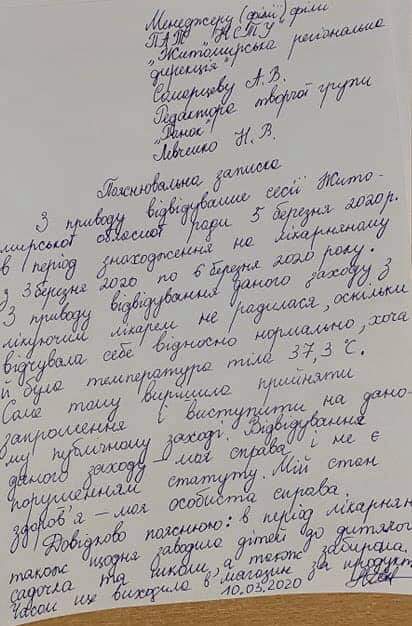 Менеджеру (філії) філи
ПАТ НСТУ
"Житомирська регіональна
дирекція"
Самарцеву А. В.
Редактора творчої групи
"Ранок"
Левченко Н. В.
Пояснювальна записка
З приводу відвідування сесії Жито-
мирської обласної ради 5 березня 2020р.
в період знаходження на лікарняному
з 3 березня 2020 по 6 березня 2020 року.
З приводу відвідування даного заходу з
лікуючим лікарем не радилася, оскільки
відчувала себе відносно нормально, хоча
й була температура тіла 37,3 °С.
Саме тому вирішила прийняти
запрошення і виступити на дано-
му публічному заході. Відвідування
даного заходу – моя справа і не є
порушенням статуту. Мій стан
здоров'я – моя особиста справа.
Довідково поясню: в період лікарняно
також щодня заводила дітей до дитячого
садочка та школи, а також забирала.
Часом ще виходила в магазин за продукт
10.03.2020